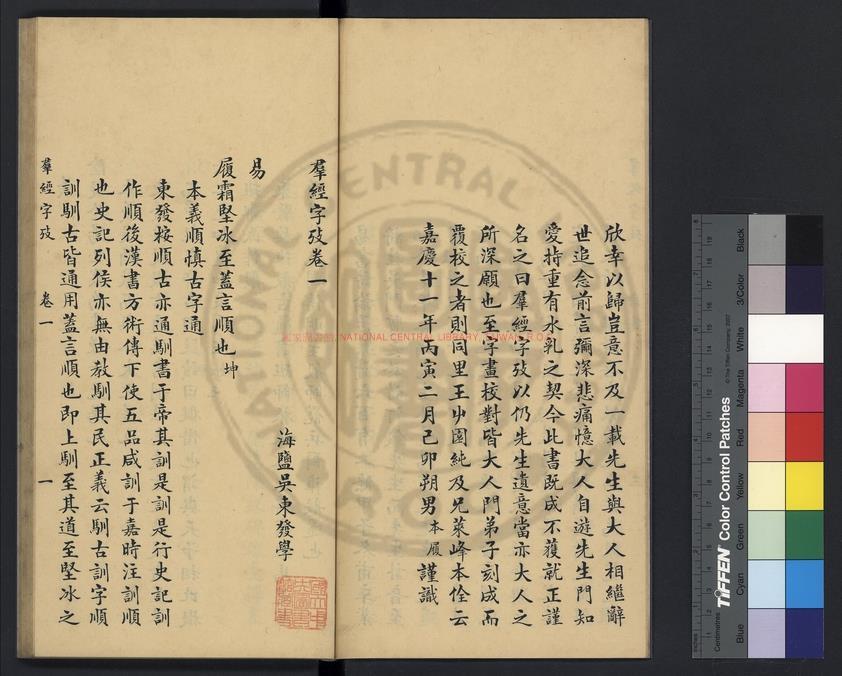 欣幸以歸豈意不及一載先生與大人相繼辭
世追念前言彌深悲痛憶大人自遊先生門知
愛特重有水乳之契今此書既成不獲就正謹
名之曰羣經字攷以仍先生遺意當亦大人之
所深願也至字畫校對皆大人門弟子刻成而
覆校之者則同里王少園純及兄萊峰本佺云
嘉慶十一年丙寅二月己卯朔男本履謹識
羣經字攷卷一
海鹽吳東發學
易
履霜堅冰至蓋言順也坤
本義順慎古字通
東發按順古亦通馴書于帝其訓是訓是行史記訓
作順後漢書方術傳下使五品咸訓于嘉時注訓順
也史記列侯亦無由教馴其民正義云馴古訓字順
訓馴古皆通用蓋言順也即上馴至其道至堅冰之
羣經字攷 卷一 一
國家圖書館 NATIONAL CENTRAL LIBRARY, TAIWAN R.O.C
TIFFEN Color Control Patches
© The Tiffen Company, 2007
Centimetres
Inches
Blue
Cyan
Green
Yellow
Red
Magenta
White
3/Color
Black